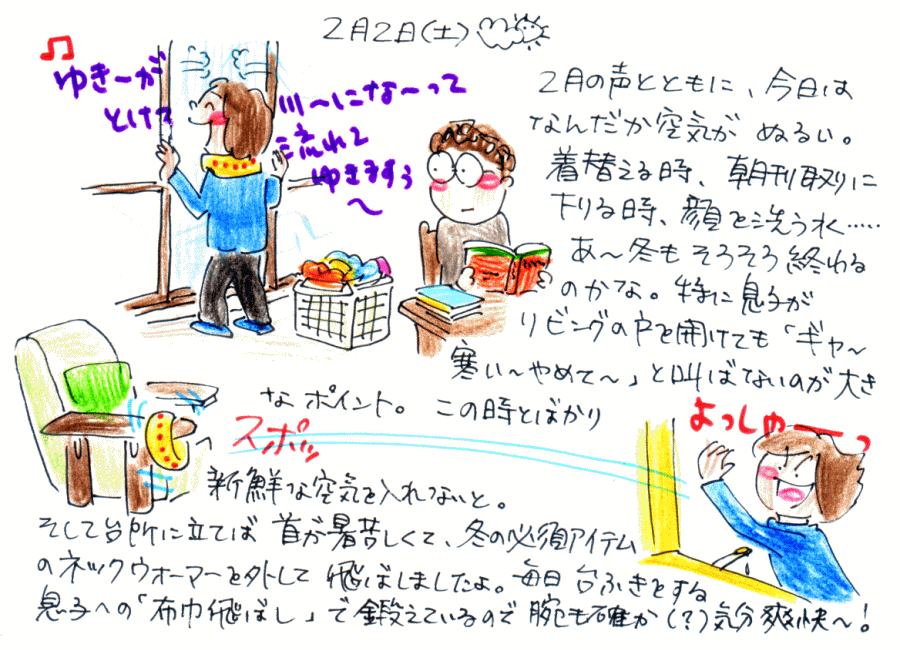 2月2日(土)
ゆきーが
とけて
川〜になーって
流れて
ゆきますぅ
〜
2月の声とともに、今日は
なんだか空気が ぬるい。
着替える時、朝刊取りに
下りる時、顔を洗う水……
あ〜冬も そろそろ 終わる
のかな。特に息子が
リビングの戸を開けても「ギャ〜
寒い〜やめて〜」と叫ばないのが大き
なポイント。この時とばかり
よっしゅーーっ
スポッ
新鮮な空気を入れないと。
そして台所に立てば 首が暑苦しくて、冬の必須アイテム
のネックウォーマーを外して 飛ばしましたよ。毎日 台ふきをする
息子への「布巾飛ばし」で鍛えているので 腕も確か(?)気分爽快〜!